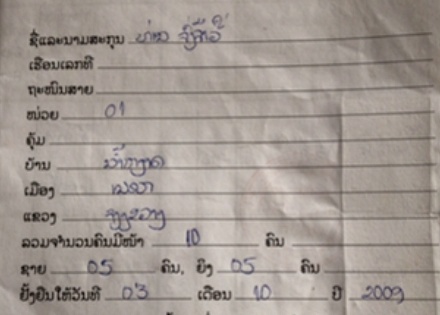 ຊື່ແລະນາມສະກຸນ ທ່ານ
ເຮືອນເລກທີ
ຖະໜົນສາຍ
ໜ່ວຍ 01
ຄຸ້ມ
ບ້ານ
ເມືອງ
ແຂວງ
ລວມຈຳນວນຄົນມີໜ້າ 10 ຄົນ
ຊາຍ 05 ຄົນ, ຍິງ 05 ຄົນ
ຢັ້ງຢືນໃຫ້ວັນທີ 03 ເດືອນ 10 ປີ 2009